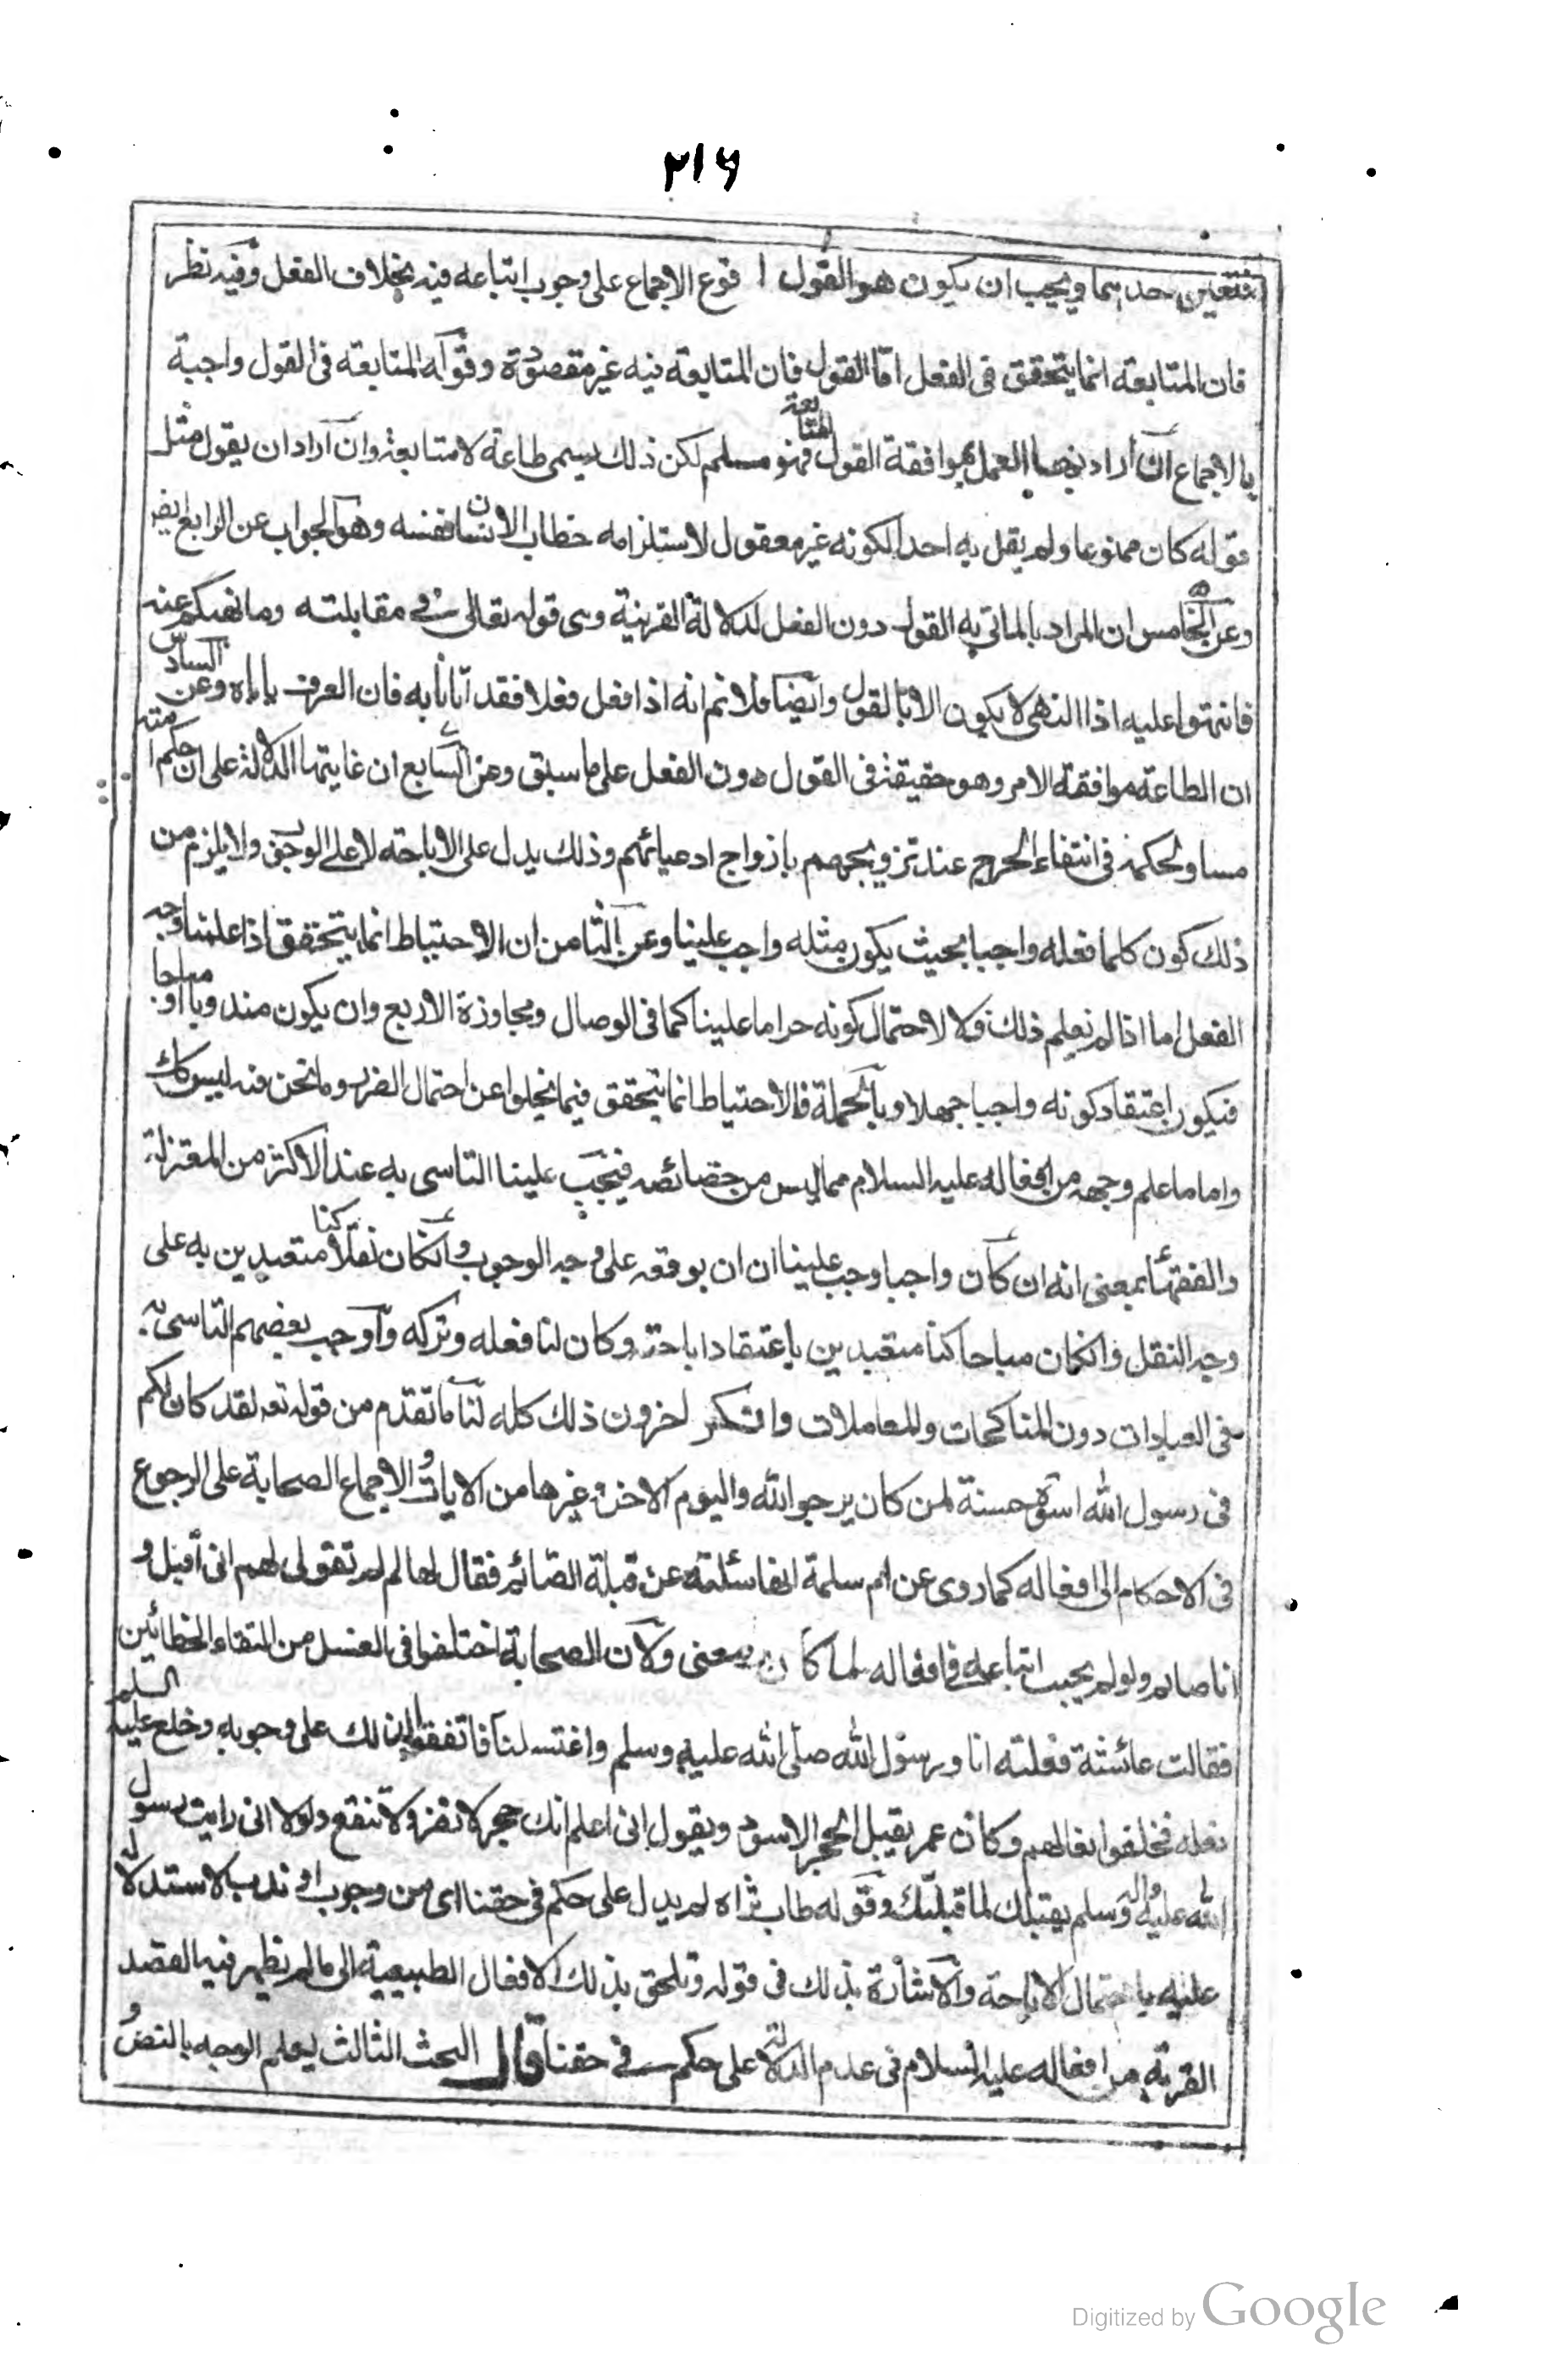 ٢١٦
فتعين حدهما ويجب ان يكون هو القول ا قوع الاجماع على وجوب اتباعه فيه بخلاف الفعل وفيه نظر
فان المتابعة انما يتحقق فى الفعل امّا القول فان المتابعة فيه غير مقصودة وقوله المتابعة فى القول واجبة
بالاجماع ان أراد بها العمل بموافقة القول المتابعة فهو مسلم لكن ذلك يسمى طاعة لا متابعة وان أراد ان يقول مثل
قوله كان ممنوعا ولم يقل به احد لكونه غير معقول لاستلزامه خطاب الانسان نفسه وهو الجواب عن الرابع ايضا
وعن الخامس ان المراد بالماتي به القول دون الفعل لدلالة القرينة وهى قوله تعالى فى مقابلته وما نهيكم عنه
فانتهوا عليه اذا النهى لا يكون الا بالقول وايضا فلانم انه اذا فعل فعلا فقد آتانا به فان العرف ياباه وعن السادس
ان الطاعة موافقة الامر وهو حقيقة فى القول دون الفعل على ما سبق وعن السابع ان غايتها الدلالة على ان حكم امته
مساو لحكمه فى انتفاء الحرج عند تزويجهم بازواج ادعيائهم وذلك يدل على الاباحة لا على الوجوب ولا يلزم من
ذلك كون كلما فعله واجبا بحيث يكون مثله واجب علينا وعن الثامن ان الاحتياط انما يتحقق اذا علمنا وجه
الفعل اما اذا لم نعلم ذلك فلا لاحتمال كونه حراما علينا كما فى الوصال ومجاوزة الاربع وان يكون مندوبا او مباحا
فيكون اعتقاد كونه واجبا جهلا وبالجملة فالاحتياط انما يتحقق فيما يخلوا عن احتمال الضرر وما نحن فيه ليس كك
واما ما علم وجهه من افعاله عليه السلام مما ليس من خصائصه فيجب علينا التاسى به عند الاكثر من المعتزلة
والفقهاء بمعنى انه ان كان واجبا وجب علينا ان ان بوقعه على وجه الوجوب وانكان نفلا كنا متعبدين به على
وجه النفل وانكان مباحا كنا متعبدين باعتقاد اباحته وكان لنا فعله وتركه واوجب بعضهم التاسى به
فى العبادات دون المناكحات والمعاملات وانكر اخرون ذلك كله لنا ما تقدم من قوله تعه لقد كان لكم
فى رسول الله اسوة حسنة لمن كان يرجو الله واليوم الاخر وغيرها من الايات والاجماع الصحابة على الرجوع
فى الاحكام الى افعاله كما روى عن ام سلمة انها سئلته عن قبلة الصائم فقال لها لم لم تقولى لهم انى أقبل و
انا صائم ولو لم يجب اتباعه فى افعاله لما كان معنى ولان الصحابة اختلفوا فى الغسل من التقاء الختانين
فقالت عائشة فعلته انا ورسول الله صلى الله عليه وسلم واغتسلنا فاتفقوا لذلك على وجوبه وخلع عليه السلم
نعله فخلعوا نعالهم وكان عمر يقبل الحجر الاسود ويقول انى اعلم انك حجر لا تضر ولا تنفع ولولا انى رايت رسول
الله عليه واله وسلم يقبلك لما قبلتك وقوله طاب ثراه لم يدل على حكم فى حقنا اى من وجوب او ندب لاستدلال
عليه باحتمال الاباحة والاشارة بذلك فى قوله وتلحق بذلك الافعال الطبيعية الى ما لم يظهر فيه القصد
القربة من افعاله عليه السلام فى عدم الدلالة على حكم فى حقنا قال البحث الثالث يعلم الوجه بالنص و
Digitized by Google